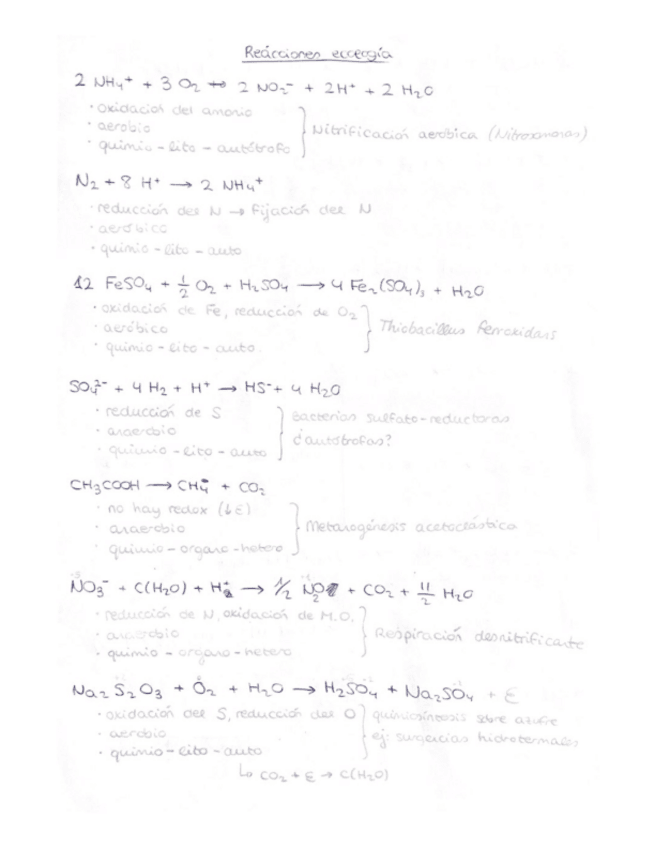 Reacciones energía
2 NH₄⁺ + 3 O₂ ↔ 2 NO₂⁻ + 2H⁺ + 2 H₂O
· oxidación del amonio
· aerobio
· quimio - lito - autótrofo
Nitrificación aeróbica (Nitrosomonas)
N₂ + 8 H⁺ → 2 NH₄⁺
· reducción del N → Fijación del N
· aeróbico
· quimio - lito - auto
12 FeSO₄ + 1/2 O₂ + H₂SO₄ → 4 Fe₂(SO₄)₃ + H₂O
· oxidación de Fe, reducción de O₂
· aeróbico
· quimio - lito - auto.
Thiobacillus ferroxidans
SO₄²⁻ + 4 H₂ + H⁺ → HS⁻ + 4 H₂O
· reducción de S
· anaerobio
· quimio - lito - auto
Bacterias sulfato-reductoras
¿autótrofas?
CH₃COOH → CH₄ + CO₂
· no hay redox (↓E)
· anaerobio
· quimio - organo - hetero
Metanogénesis acetoclástica
NO₃⁻ + C(H₂O) + H⁺ → 1/2 N₂ + CO₂ + 11/2 H₂O
· reducción de N, oxidación de M.O.
· anaerobio
· quimio - organo - hetero
Respiración desnitrificante
Na₂S₂O₃ + O₂ + H₂O → H₂SO₄ + Na₂SO₄ + E
· oxidación del S, reducción del O
· aerobio
· quimio - lito - auto
quimiosíntesis sobre azufre
ej: surgencias hidrotermales
↳ CO₂ + E → C(H₂O)